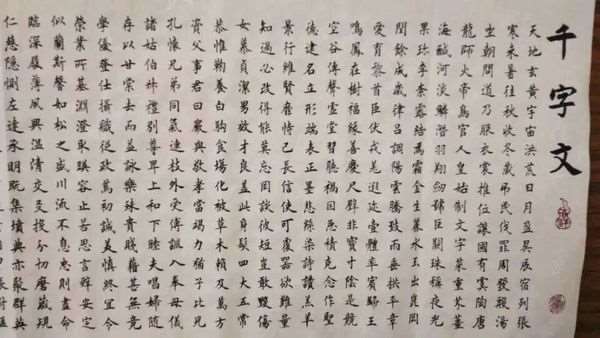 千字文
天地玄黃宇宙洪荒日月盈昃辰宿列張
寒來暑往秋收冬藏弔民伐罪周發殷湯
坐朝問道乃服衣裳推位讓國有虞陶唐
龍師火帝鳥官人皇始制文字菜重芥薑
海鹹河淡鱗潛羽翔劍號巨闕珠稱夜光
果珍李柰露結為霜金生麗水玉出崑岡
閏餘成歲律呂調陽雲騰致雨垂拱平章
愛育黎首臣伏戎羌遐邇壹體率賓歸王
鳴鳳在樹福緣善慶尺璧非寶寸陰是競
空谷傳聲虛堂習聽禍因惡積克念作聖
德建名立形端表正墨悲絲染詩讚羔羊
景行維賢靡恃己長信使可覆器欲難量
知過必改得能莫忘罔談彼短豈敢毀傷
女慕貞潔男效才良蓋此身髮四大五常
恭惟鞠養白駒食場化被草木賴及萬方
資父事君曰嚴與敬孝當竭力猶子比兒
孔懷兄弟同氣連枝外受傅訓入奉母儀
諸姑伯叔禮別尊卑上和下睦夫唱婦隨
存以甘棠去而益詠樂殊貴賤籍甚無竟
學優登仕攝職從政篤初誠美慎終宜令
榮業所基淵澄取映容止若思言辭安定
似蘭斯馨如松之盛川流不息忠則盡命
臨深履薄夙興溫凊交友投分切磨箴規
仁慈隱惻左達承明既集墳典亦聚群英